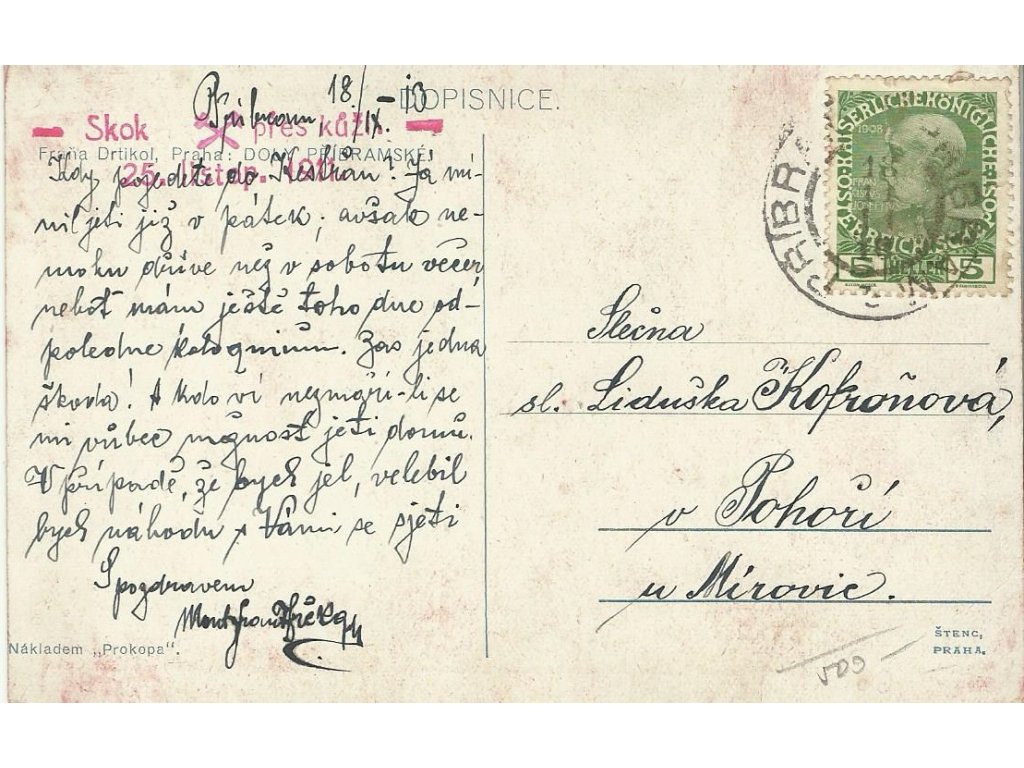 Příbram, 18/IX. – 13
DOPISNICE.
– Skok přes kůži –
Fraňa Drtikol, Praha: DOLY PŘÍBRAMSKÉ.
25. listop.
Kdy pojedete do Kestřan? Já mí-
nil jeti již v pátek; avšak ne-
mohu dříve než v sobotu večer
neboť mám ještě toho dne od-
poledne koloquium. Zas jedna
škoda! A kdo ví nezmaří-li se
mi vůbec možnost jeti domů.
V případě, že bych jel, velebil
bych náhodu s Vámi se sjeti
S pozdravem
Nákladem „Prokopa".
KAISERLICHE KÖNIGLICHE
1908
5 HELLER 5
PŘÍBRAM
18
Slečna
sl. Liduška Kofroňová,
v Pohoří
u Mírovic.
ŠTENC,
PRAHA.
509